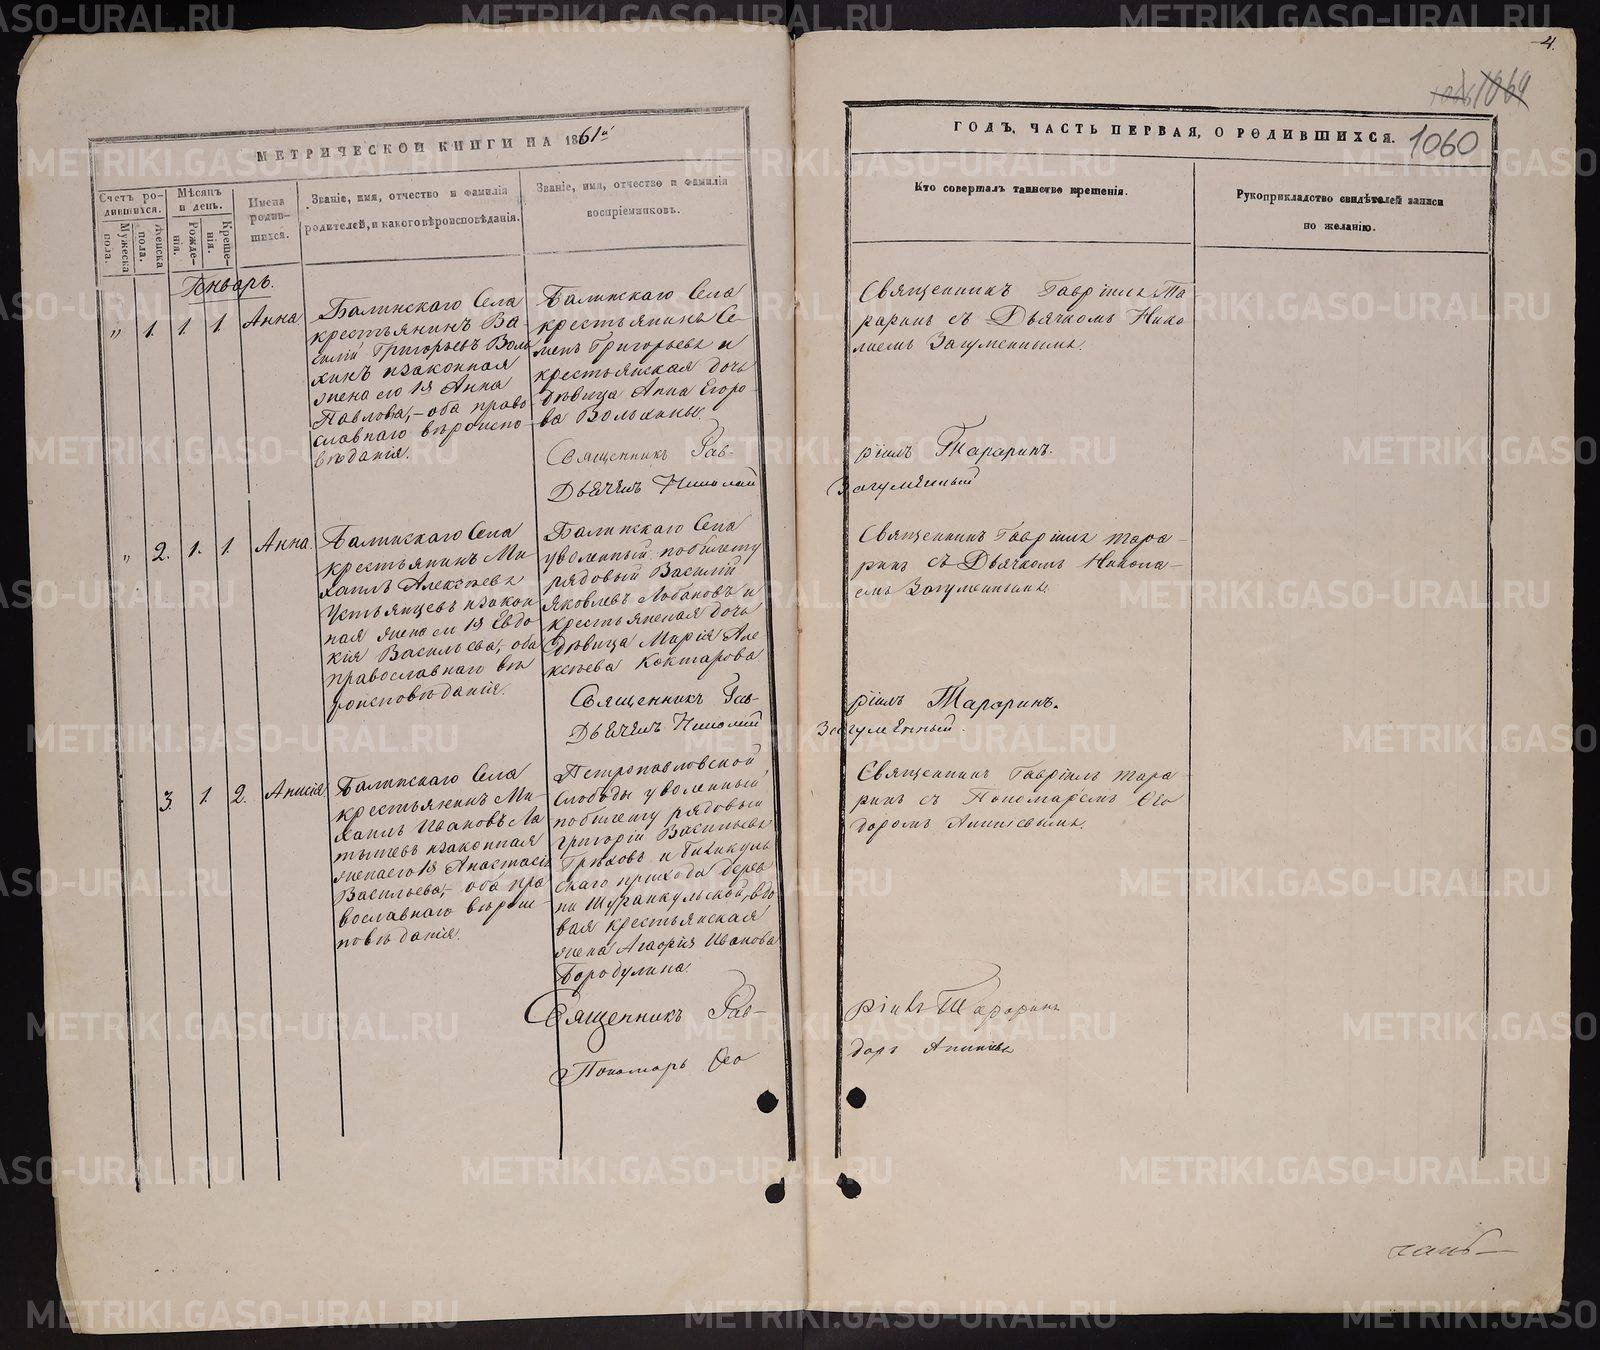 4.
1060
МЕТРИЧЕСКОЙ КНИГИ НА 1861й
ГОДЪ, ЧАСТЬ ПЕРВАЯ, О РОДИВШИХСЯ.
Счетъ ро-
дившихся.
Мужеска
пола.
Женска
пола.
Мѣсяцъ
и день.
Рожде-
нія.
Креще-
нія.
Имена
родив-
шихся.
Званіе, имя, отчество и фамилія
родителей, и какого вѣроисповѣданія.
Званіе, имя, отчество и фамилія
воспріемниковъ.
Кто совершалъ таинство крещенія.
Рукоприкладство свидѣтелей записи
по желанію.
Январь.
„ 1. 1. 1. Анна
Балинскаго Села
крестьянинъ Ва-
силій Григорьевъ Вол
хинъ изаконная
жена его 1я Анна
Павлова, – оба право-
славнаго вѣроиспо-
вѣданія.
Балинскаго Села
крестьянинъ Се-
менъ Григорьевъ и
крестьянская дочь
дѣвица Анна Егоро-
ва Волхины.
Священникъ Гав-
Дьячекъ Николай
Священникъ Гавріилъ Та
раринъ съ Дьячкомъ Нико
лаемъ Загуменнымъ.
ріилъ Тараринъ.
Загуменный
„ 2. 1. 1. Анна.
Балинскаго Села
крестьянинъ Ми-
хаилъ Алексѣевъ
Устьянцевъ изакон
ная жена его 1я Евдо
кія Васильева, оба
православнаго вѣ
роисповѣданія.
Балинскаго Села
уволенный побилету
рядовый Василій
Яковлевъ Лобановъ и
крестьянская дочь
дѣвица Марія Але
ксѣева Коктарова
Священникъ Гав-
Дьячекъ Николай
Священникъ Гавріилъ Тара-
ринъ съ Дьячкомъ Никола-
емъ Загуменнымъ.
ріилъ Тараринъ.
Загуменный.
3 1. 2. Анисія
Балинскаго Села
крестьянинъ Ми-
хаилъ Ивановъ Ла
тышевъ изаконная
жена его 1я Анастасія
Васильева, – оба пра
вославнаго вѣроис-
повѣданія.
Петропавловской
Слободы уволенный
побилету рядовый
Григорій Васильевъ
Грѣховъ и
скаго прихода дерев
ни вдо
вая крестьянская
жена Агафія Иванова
Бородулина.
Священникъ Гав-
Пономарь Ѳео
Священникъ Гавріилъ Тара-
ринъ съ Пономаремъ Ѳео
доромъ
ріилъ Тараринъ
доръ
METRIKI.GASO-URAL.RU